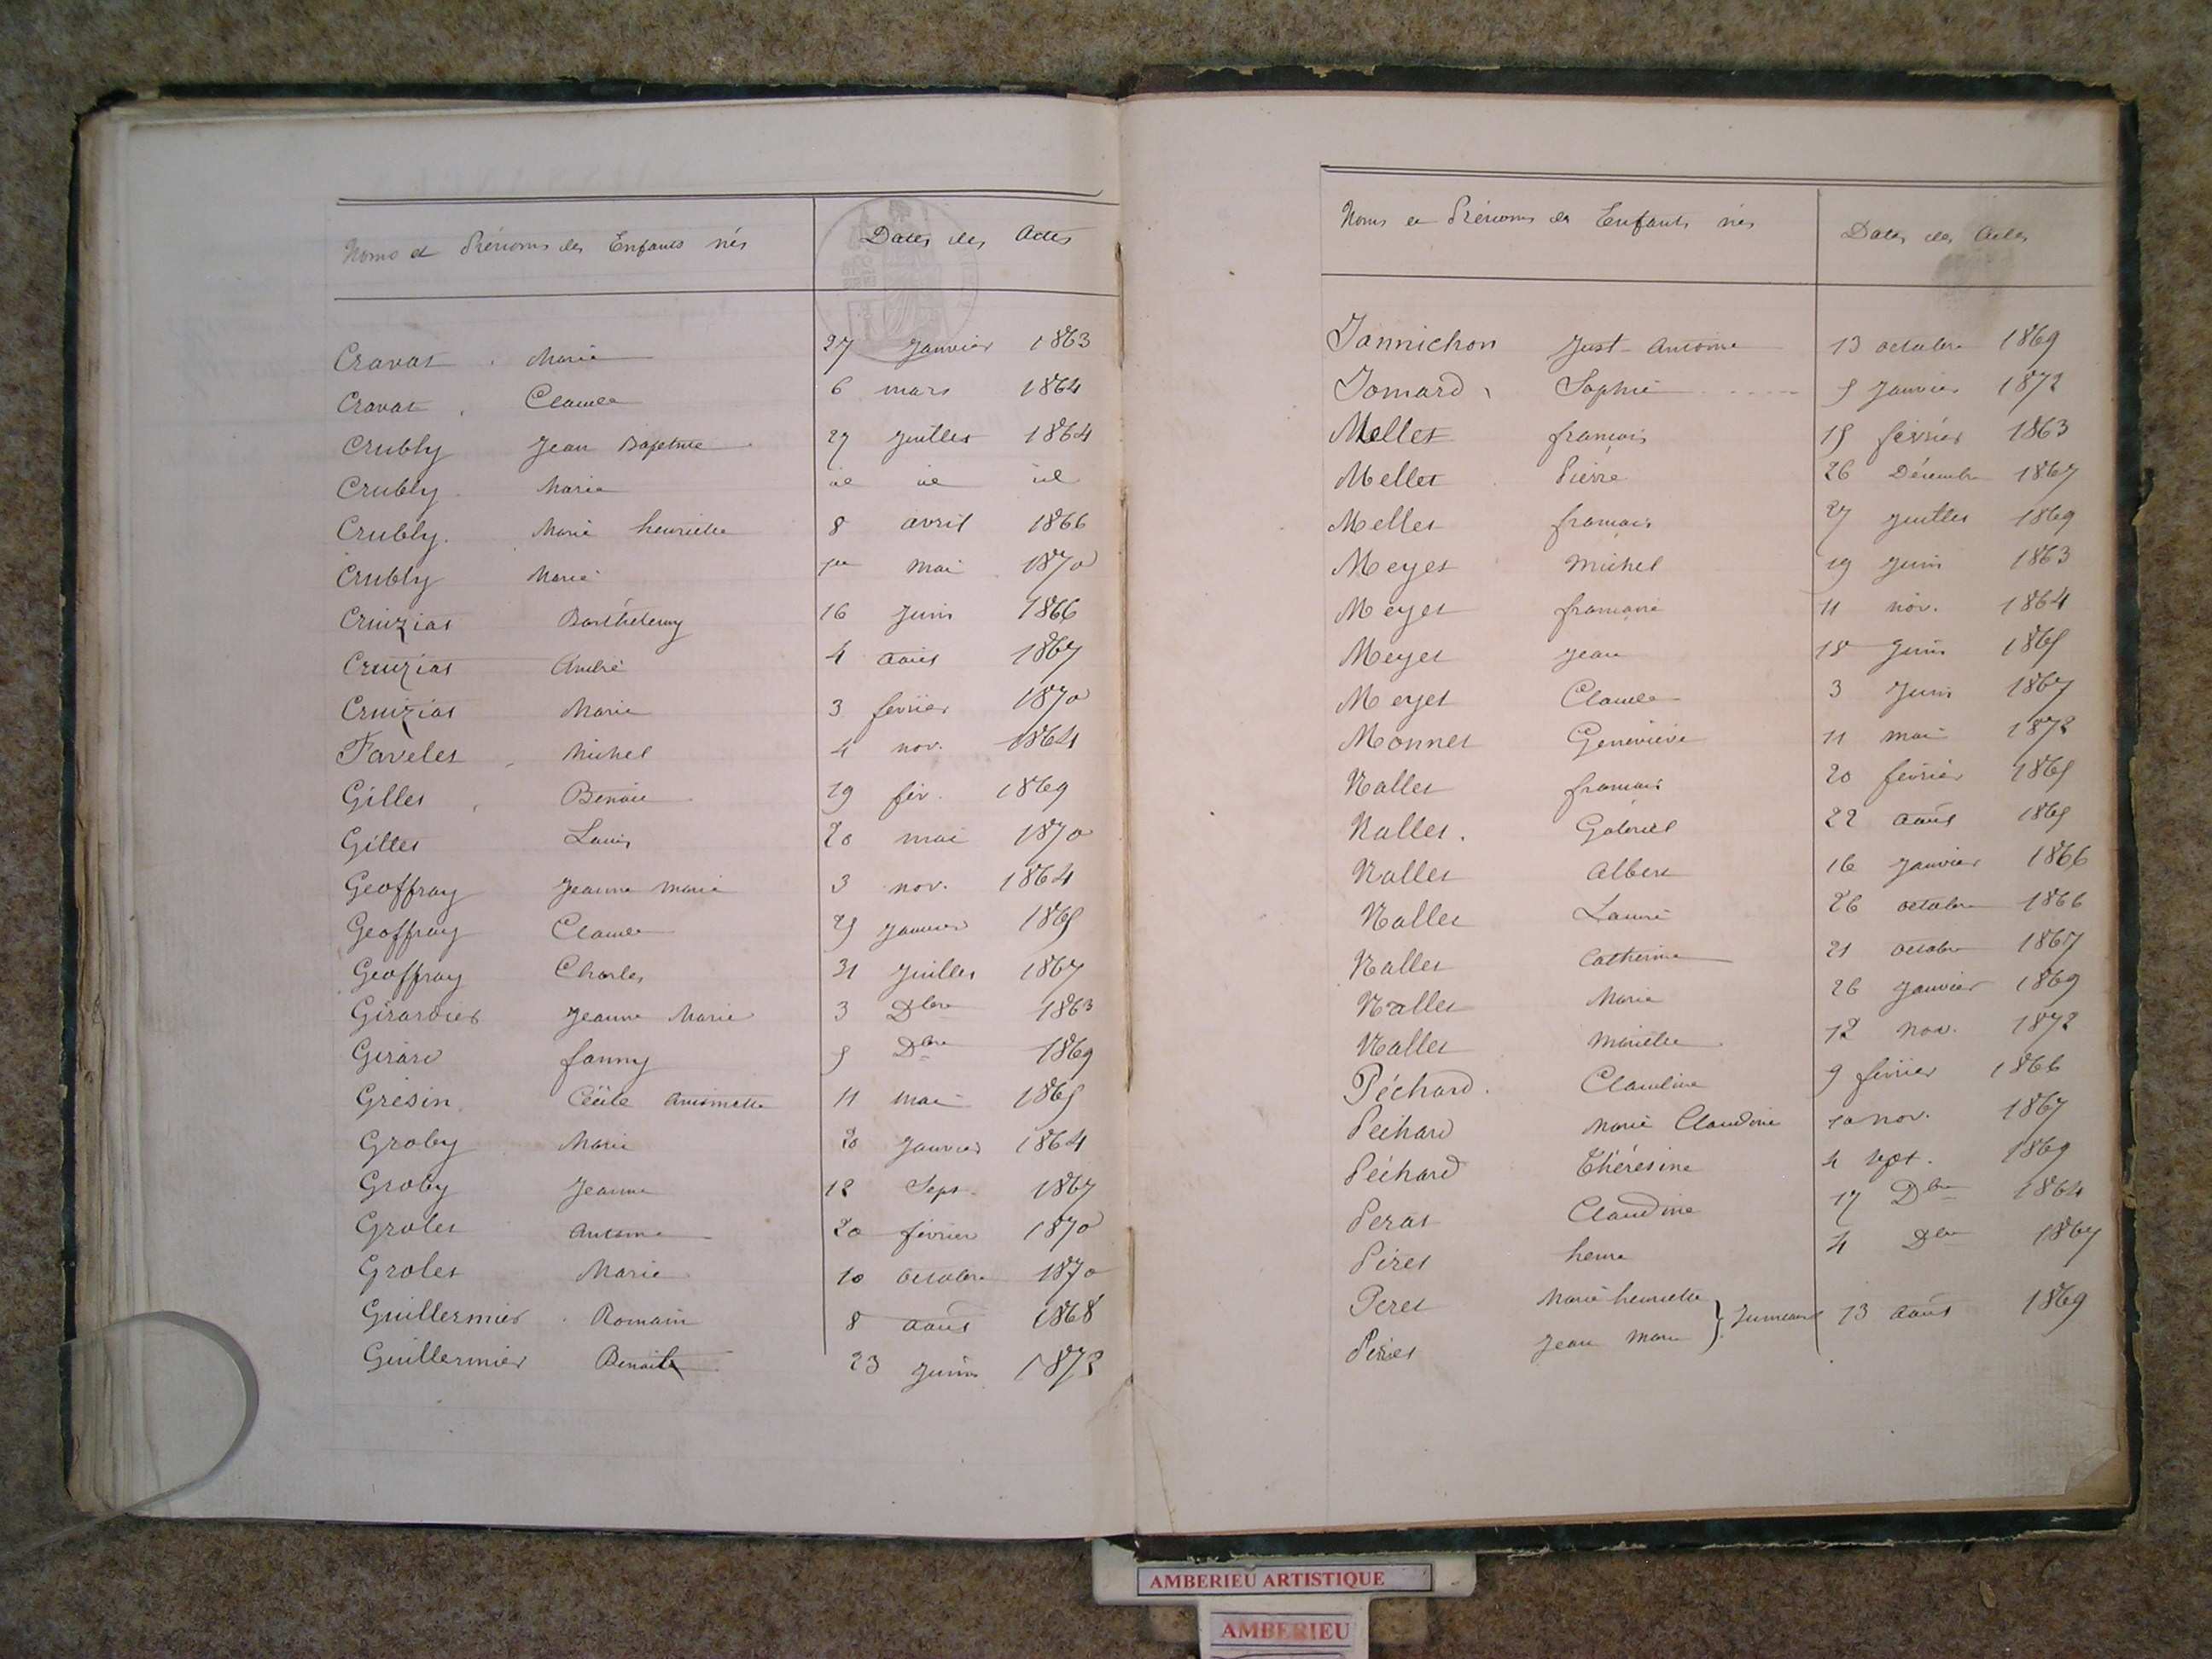 Noms et Prénoms des Enfants nés Dates des Actes
Cravat Marie 27 Janvier 1863
Cravat Claude 6 mars 1864
Crubly Jean Baptiste 27 Juillet 1864
Crubly Marie id id id
Crubly Marie henriette 8 avril 1866
Crubly Marie 1er Mai 1870
Cruizias Barthélemy 16 Juin 1866
Cruizias André 4 août 1867
Cruizias Marie 3 février 1870
Favelet Michel 4 nov. 1864
Gillet Benoit 19 fév. 1869
Gillet Louis 20 mai 1870
Geoffray Jeanne marie 3 nov. 1864
Geoffray Claude 25 Janvier 1865
Geoffray Charles 31 Juillet 1867
Girardier Jeanne Marie 3 Dbre 1863
Girard fanny 5 Dbre 1869
Grésin Cécile Antoinette 11 mai 1865
Groby Marie 20 Janvier 1864
Groby Jeanne 12 Sept. 1867
Grolet Antoine 20 février 1870
Grolet Marie 10 octobre 1870
Guillermier Romain 8 août 1868
Guillermier Benoite 23 Juin 1872
Noms et Prénoms des Enfants nés Dates des Actes
Jannichon Just-Antoine 13 octobre 1869
Jomard Sophie 5 Janvier 1872
Mellet françois 15 février 1863
Mellet Pierre 26 Décembre 1867
Mellet françois 27 Juillet 1869
Meyet Michel 19 Juin 1863
Meyet 11 nov. 1864
Meyet Jean 18 Juin 1865
Meyet Claude 3 Juin 1867
Monnet Geneviève 11 mai 1872
Nallet françois 20 février 1865
Nallet Gabriel 22 août 1865
Nallet Albert 16 Janvier 1866
Nallet 26 octobre 1866
Nallet Catherine 21 octobre 1867
Nallet Marie 26 Janvier 1869
Nallet Mariette 12 nov. 1872
Péchard Claudine 9 février 1866
Péchard Marie Claudine 10 nov. 1867
Péchard Thérésine 4 sept. 1869
Peras Claudine 17 Dbre 1864
Péret 4 Dbre 1867
Peret Marie henriette } Jumeaux 13 août 1869
Péret Jean Marie
AMBERIEU ARTISTIQUE
AMBERIEU